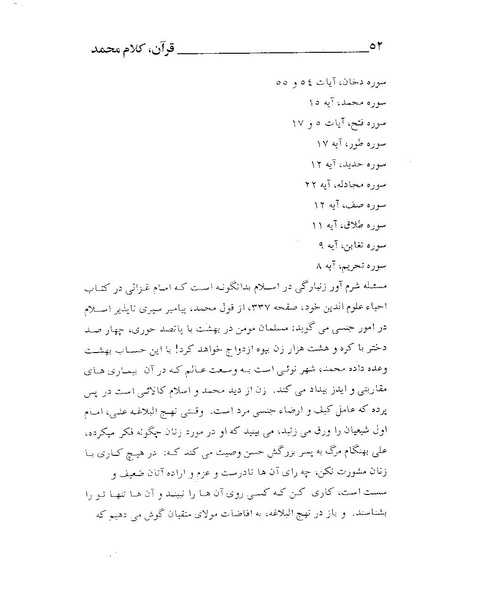 ۵۲ قرآن، کلام محمد
سوره دخان، آیات ۵٤ و ۵۵
سوره محمد، آیه ۱۵
سوره فتح، آیات ۵ و ۱۷
سوره طور، آیه ۱۷
سوره حدید، آیه ۱۲
سوره مجادله، آیه ۲۲
سوره صف، آیه ۱۲
سوره طلاق، آیه ۱۱
سوره تغابن، آیه ۹
سوره تحریم، آیه ۸
مسئله شرم آور زنبارگی در اسلام بدانگونه است که امام غزائی در کتاب
احیاء علوم الدین خود، صفحه ۳۳۷، از قول محمد، پیامبر سیری ناپذیر اسلام
در امور جنسی می گوید: مسلمان مومن در بهشت با پانصد حوری، چهار صد
دختر باکره و هشت هزار زن بیوه ازدواج خواهد کرد! با این حساب بهشت
وعده داده محمد، شهر نوئی است به وسعت عالم که در آن بیماری های
مقاربتی و ایدز بیداد می کند. زن از دید محمد و اسلام کالائی است در پس
پرده که عامل کیف و ارضاء جنسی مرد است. وقتی نهج البلاغه علی، امام
اول شیعیان را ورق می زنید، می بینید که او در مورد زنان چگونه فکر میکرده،
علی بهنگام مرگ به پسر بزرگش حسن وصیت می کند که: در هیچ کاری با
زنان مشورت نکن، چه رای آن ها نادرست و عزم و اراده آنان ضعیف و
سست است، کاری کن که کسی روی آن ها را نبیند و آن ها تنها تو را
بشناسند. و باز در نهج البلاغه، به افاضات مولای متقیان گوش می دهیم که